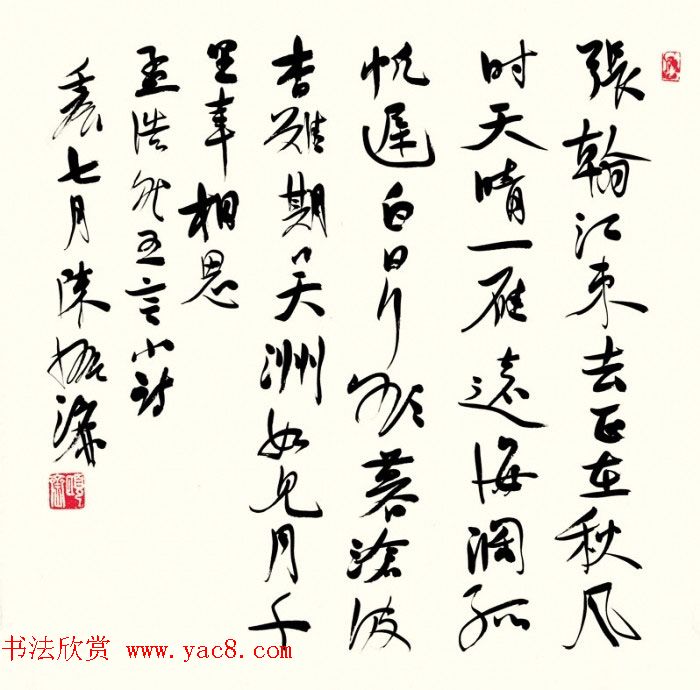 張翰江東去正在秋风
时天晴一雁遠海濶孤
帆遲白日行欲暮滄波
杳難期吴洲如见月千
里幸相思
孟浩然五言小詩
七月陳振濂
书法欣赏 www.yac8.com